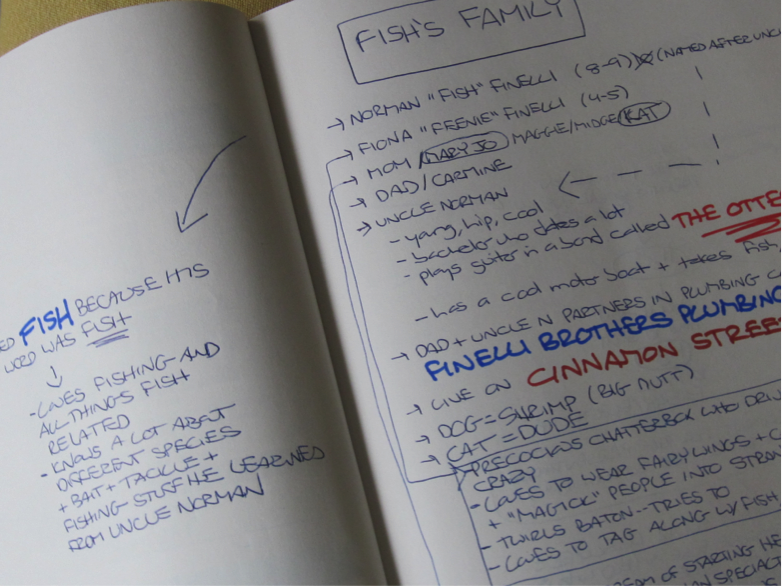 FISH BECAUSE ITS
WORD WAS FISH
-LOVES FISHING AND
ALL THINGS FISH
RELATED
-KNOWS A LOT ABOUT
DIFFERENT SPECIES
+ BAIT + TACKLE +
FISHING STUFF HE LEARNED
FROM UNCLE NORMAN
FISH'S FAMILY
→ NORMAN "FISH" FINELLI (8-9) (NAMED AFTER UNCLE
→ FIONA "FEENIE" FINELLI (4-5)
→ MOM / MARY JO MAGGIE/MIDGE/KAT
→ DAD/CARMINE
→ UNCLE NORMAN
- young, hip, cool
- bachelor who dates a lot
- plays guitar in a band called THE OTTE
- has a cool motor boat + takes fish,
→ DAD + UNCLE N PARTNERS IN PLUMBING
FINELLI BROTHERS PLUMBING
→ LIVE ON CINNAMON STREET
→ DOG = SHRIMP (BIG MUTT)
→ CAT = DUDE
PRECOCIOUS CHATTERBOX WHO
CRAZY
-LOVES TO WEAR FAIRY WINGS +
+ "MAGICK" PEOPLE INTO
- TWIRLS BATON--TRIES TO
- LOVES TO TAG ALONG W/ FISH
OF STARTING